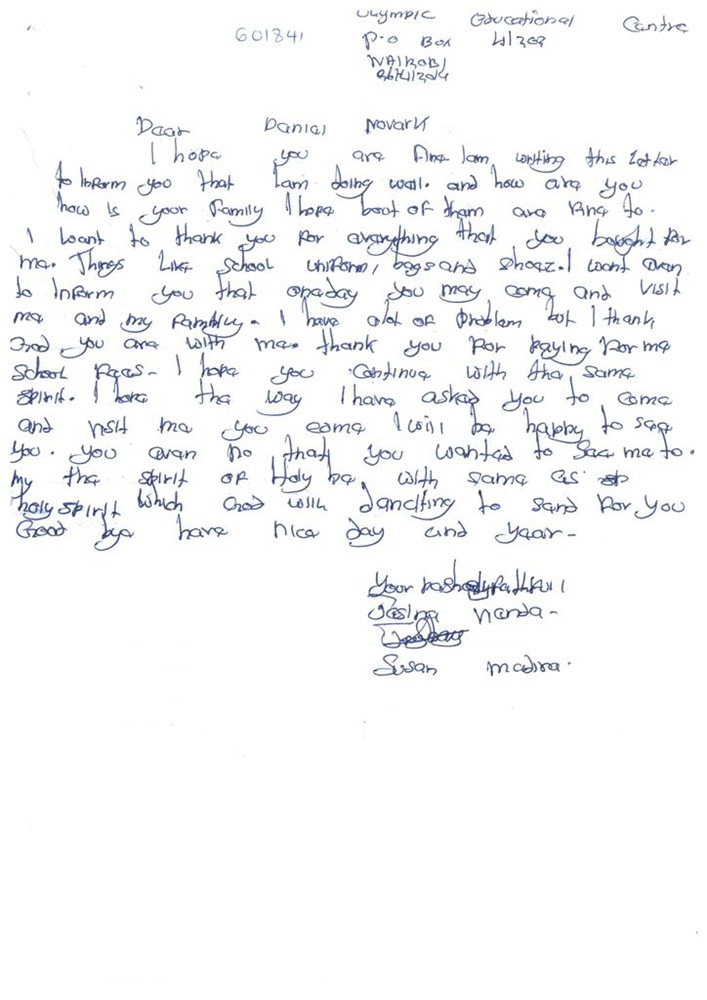 Olympic Educational Centre
601841
P.O Box 41303
NAIROBI
Dear Danial Novark
I hope you are fine Iam writing this Letter
to Inform you that Iam doing well. and how are you
how is your Family I hope boot of tham are Fine to.
I want to thank you for everything that you bought for
me. Things Like school uniform, bags and shoez. I want even
to Inform you that oneday you may come and visit
me and my Fambly. I have alot of problem but I thank
God you are with me. thank you For paying For me
School Fees - I hope you Continue with the same
spirit. I hope the way I have asked you to come
and visit me you come I will be happy to see
you. you even no that you wanted to see me to.
my the spirit of Holy be with same as
holy spirit which God will to send For you
Good bye have nice day and year -
Your Faithfull
Nanda -
Susan